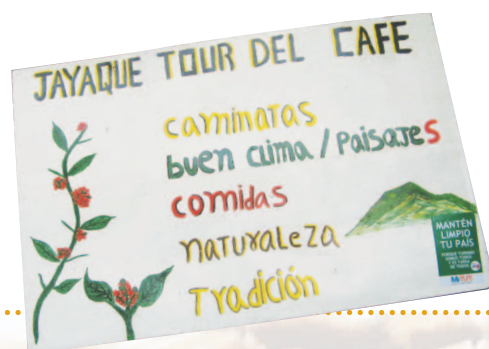 JAYAQUE TOUR DEL CAFE
caminatas
buen clima / Paisajes
comidas
naturaleza
Tradición
MANTÉN
LIMPIO
TU PAÍS